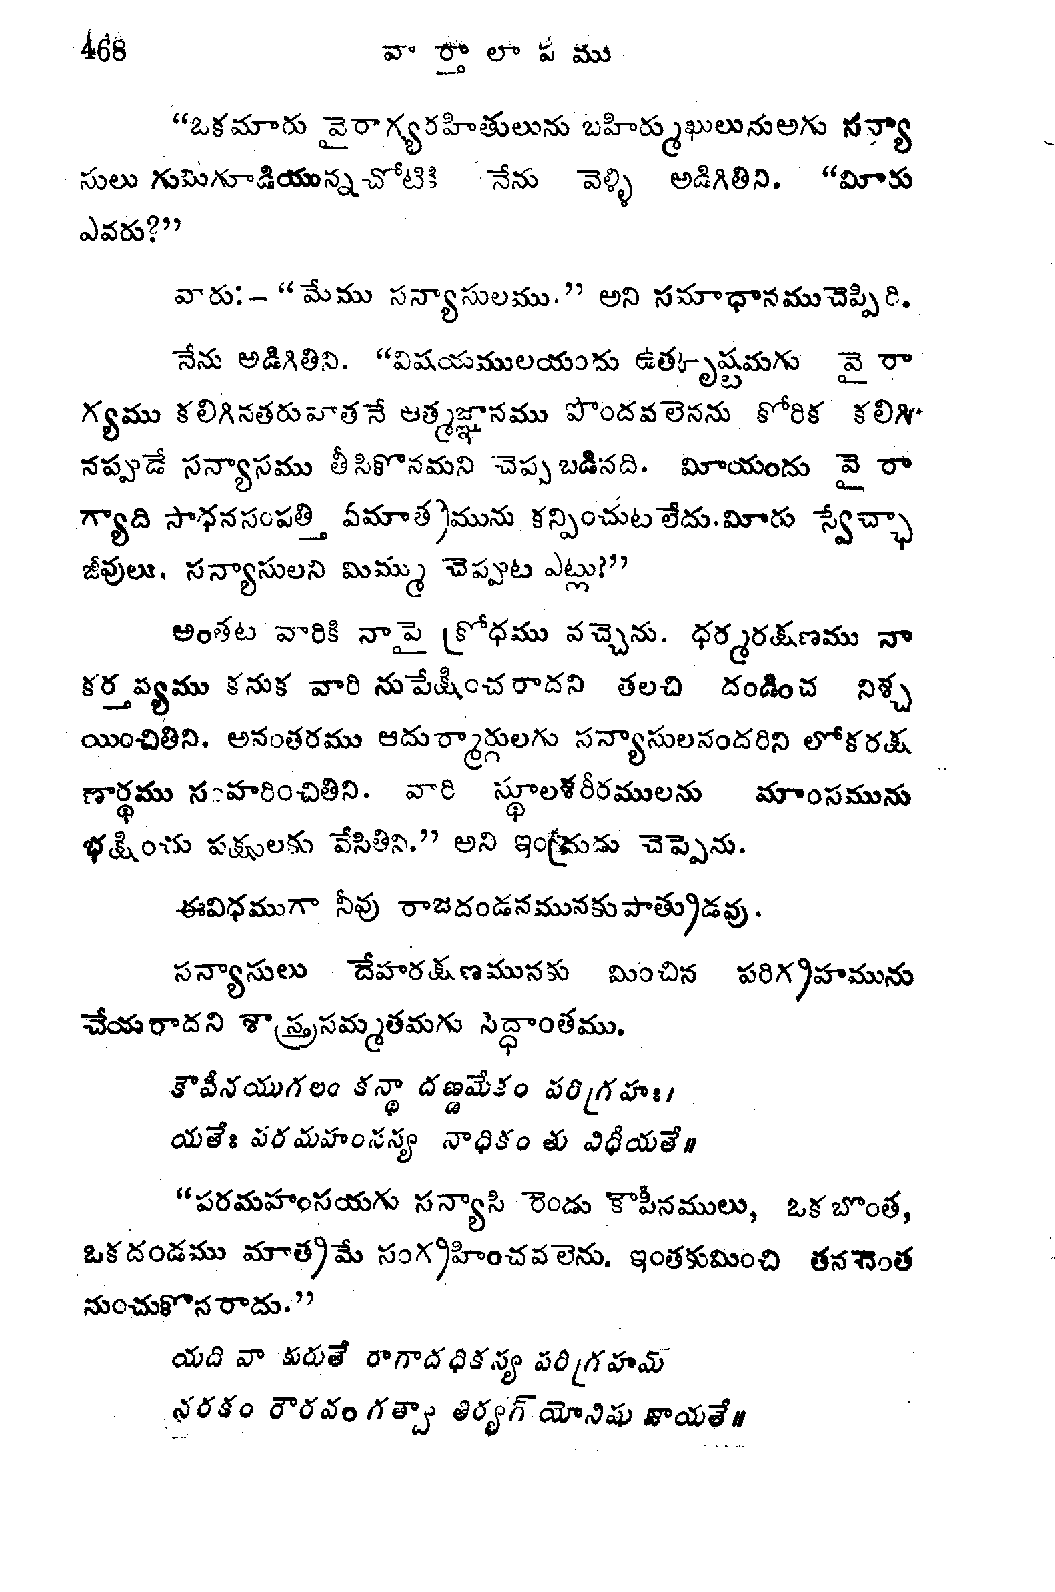 468 వార్తాలాపము
“ఒకమారు వైరాగ్యరహితులును బహిర్ముఖులునుఅగు సన్యా
సులు గుమిగూడియున్నచోటికి నేను వెళ్ళి అడిగితిని. “మీరు
ఎవరు?”
వారు:– “మేము సన్యాసులము.” అని సమాధానముచెప్పిరి.
నేను అడిగితిని. “విషయములయందు ఉత్కృష్టమగు వైరా
గ్యము కలిగినతరువాతనే ఆత్మజ్ఞానము పొందవలెనను కోరిక కలిగి
నప్పుడే సన్యాసము తీసికొనమని చెప్పబడినది. మీయందు వైరా
గ్యాది సాధనసంపత్తి ఏమాత్రమును కన్పించుటలేదు.మీరు స్వేచ్ఛా
జీవులు. సన్యాసులని మిమ్ము చెప్పుట ఎట్లు?”
అంతట వారికి నాపై క్రోధము వచ్చెను. ధర్మరక్షణము నా
కర్తవ్యము కనుక వారి నుపేక్షించరాదని తలచి దండించ నిశ్చ
యించితిని. అనంతరము ఆదుర్మార్గులగు సన్యాసులనందరిని లోకరక్ష
ణార్థము సంహరించితిని. వారి స్థూలశరీరములను మాంసమును
భక్షించు పక్షులకు వేసితిని.” అని ఇంద్రుడు చెప్పెను.
ఈవిధముగా నీవు రాజదండనమునకుపాత్రుడవు.
సన్యాసులు దేహరక్షణమునకు మించిన పరిగ్రహమును
చేయరాదని శాస్త్రసమ్మతమగు సిద్ధాంతము.
కౌపీనయుగలం కన్థా దణ్డమేకం పరిగ్రహః।
యతేః పరమహంసస్య నాధికం తు విధీయతే॥
“పరమహంసయగు సన్యాసి రెండు కౌపీనములు, ఒకబొంత,
ఒకదండము మాత్రమే సంగ్రహించవలెను. ఇంతకుమించి తనచెంత
నుంచుకొనరాదు.”
యది వా కురుతే రాగాదధికస్య పరిగ్రహమ్
నరకం రౌరవం గత్వా తిర్యగ్ యోనిషు జాయతే॥